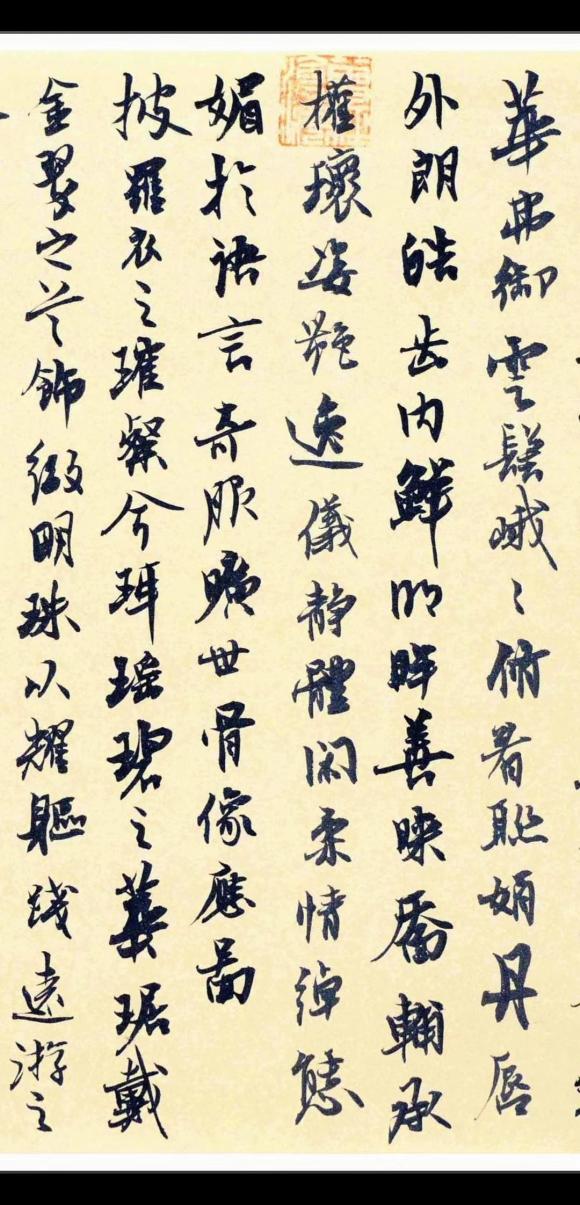 華弗御雲髻峨〻脩眉聯娟丹唇
外朗皓齒内鮮明眸善睞靨輔承
權瓌姿艷逸儀静體閑柔情綽態
媚於語言奇服曠世骨像應圖
披羅衣之璀粲兮珥瑶碧之華琚戴
金翠之首飾綴明珠以耀軀踐遠游之